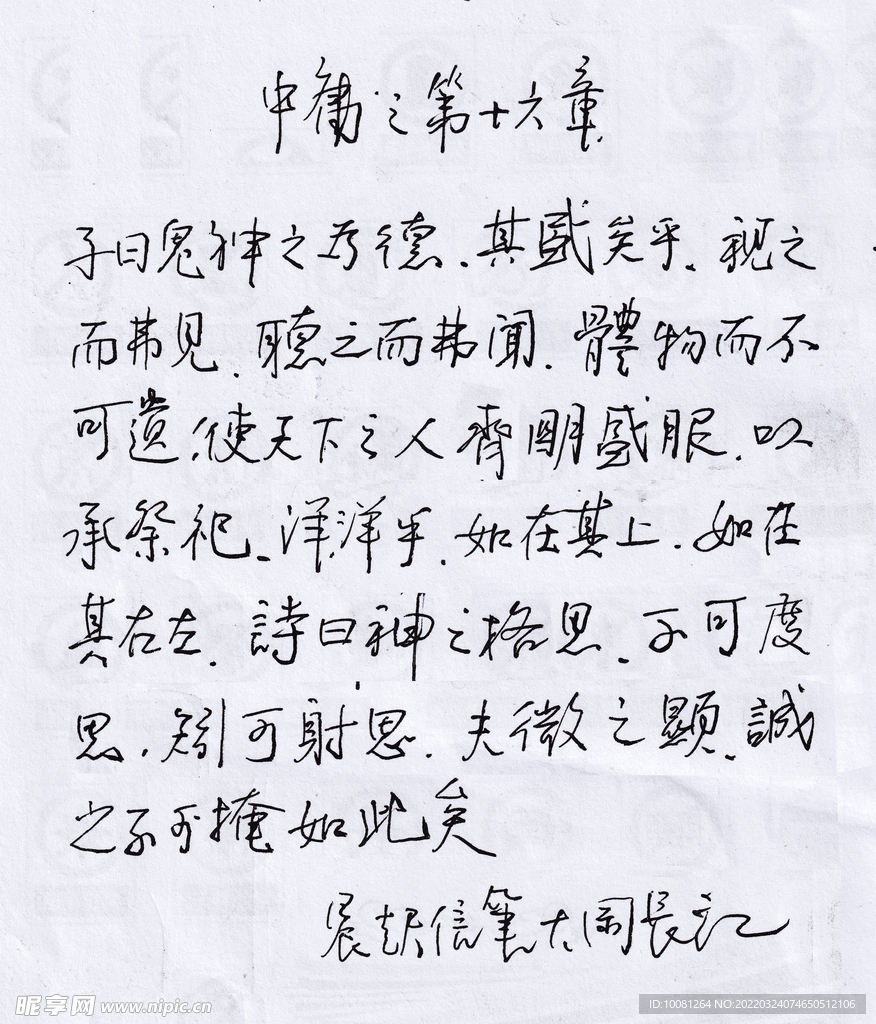 中庸之第十六章
子曰鬼神之为德.其盛矣乎.視之
而弗見.聽之而弗聞.體物而不
可遺.使天下之人齊明盛服.以
承祭祀.洋洋乎.如在其上.如在
其右左.詩曰神之格思.不可度
思.矧可射思.夫微之顯.誠
之不可掩如此矣
晨起信筆大闲長江
昵享网 www.nipic.cn
ID:10081264 NO:20220324074650512106